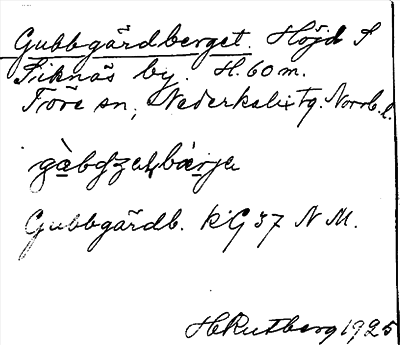 Gubbgärdberget. Höjd S
Siknäs by. H. 60 m.
Töre sn, Nederkalix tg. Norrb. l.
Gubbgärdb. KG 37 N M.
H Rutberg 1925